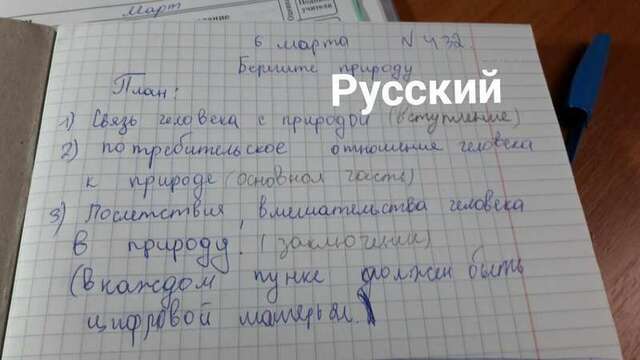 Март
6 марта N432.
Берегите природу
Русский
План:
1) Связь человека с природой (вступление)
2) потребительское отношение человека
к природе (основная часть)
3) Послетствия, вмешательства человека
в природу. (заключении)
(В каждом пунке должен быть
цифровой матерьял.)